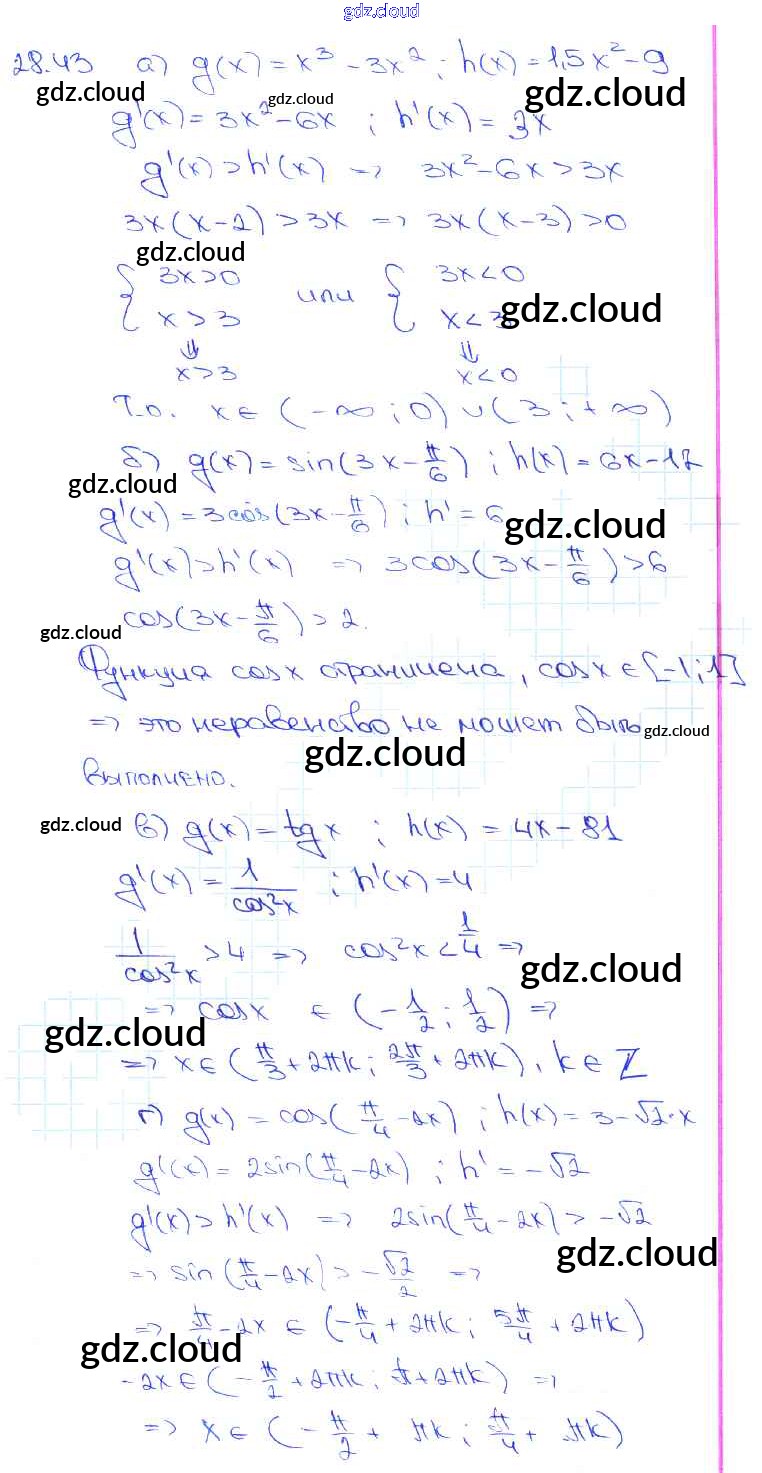 gdz.cloud
28.43 а) g(x) = x³ - 3x² ; h(x) = 1,5x² - 9
gdz.cloud gdz.cloud gdz.cloud
g'(x) = 3x² - 6x ; h'(x) = 3x
g'(x) > h'(x) => 3x² - 6x > 3x
3x(x-2) > 3x => 3x(x-3) > 0
gdz.cloud
{ 3x > 0 или { 3x < 0
x > 3 x < 3
gdz.cloud
⇓ ⇓
x > 3 x < 0
Т.о. x ∈ (-∞ ; 0) ∪ (3 ; +∞)
б) g(x) = sin(3x - π/6) ; h(x) = 6x - 12
gdz.cloud
g'(x) = 3cos(3x - π/6) ; h' = 6
gdz.cloud
g'(x) > h'(x) => 3cos(3x - π/6) > 6
cos(3x - π/6) > 2.
gdz.cloud
Функция cosx ограничена, cosx ∈ [-1 ; 1]
=> это неравенство не может быть
gdz.cloud
gdz.cloud
выполнено.
gdz.cloud
в) g(x) = tgx ; h(x) = 4x - 81
g'(x) = 1/cos²x ; h'(x) = 4
1/cos²x > 4 => cos²x < 1/4 =>
gdz.cloud
=> cosx ∈ (-1/2 ; 1/2) =>
gdz.cloud
=> x ∈ (π/3 + 2πk ; 2π/3 + 2πk), k ∈ Z
г) g(x) = cos(π/4 - 2x) ; h(x) = 3 - √2·x
g'(x) = 2sin(π/4 - 2x) ; h' = -√2
g'(x) > h'(x) => 2sin(π/4 - 2x) > -√2
gdz.cloud
=> sin(π/4 - 2x) > -√2/2 =>
=> π/4 - 2x ∈ (-π/4 + 2πk ; 5π/4 + 2πk)
gdz.cloud
-2x ∈ (-π/2 + 2πk ; π + 2πk) =>
=> x ∈ (-π/2 + πk ; π/4 + πk)